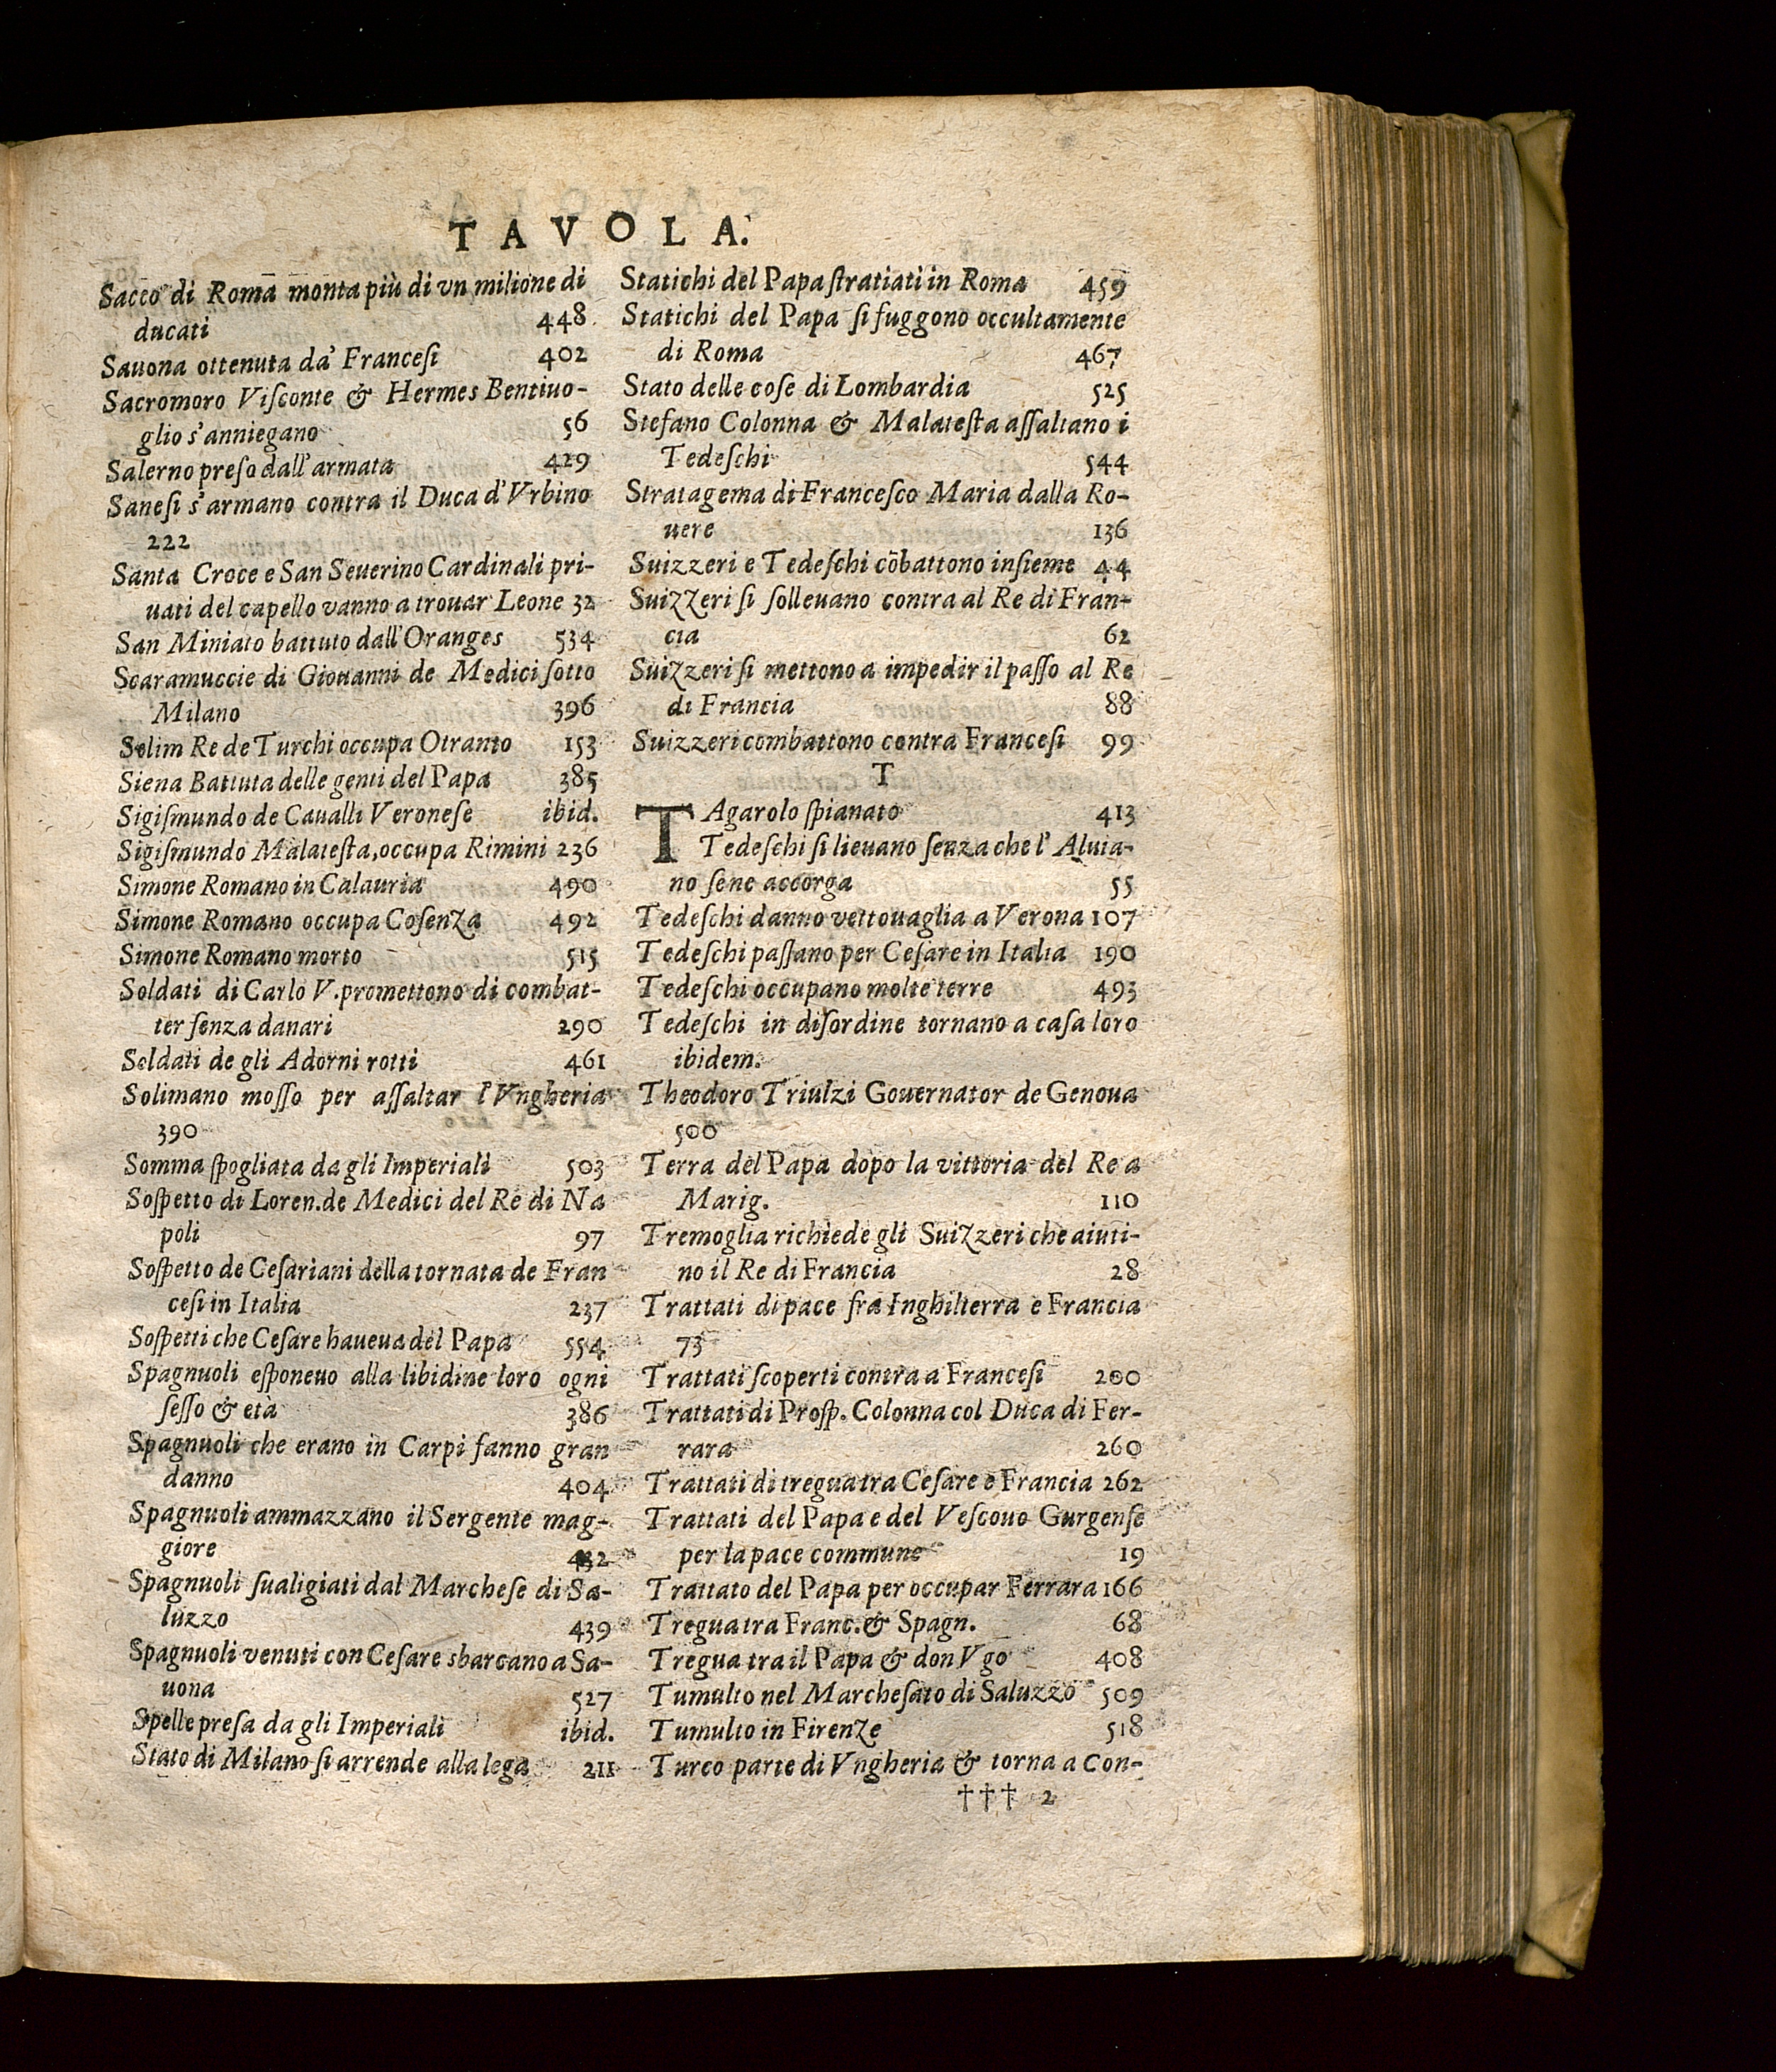 TAVOLA.
Sacco di Roma monta più di vn milione di
ducati 448
Sauona ottenuta da' Francesi 402
Sacromoro Visconte & Hermes Bentiuo-
glio s'anniegano 56
Salerno preso dall'armata 429
Sanesi s'armano contra il Duca d'Vrbino
222
Santa Croce e San Seuerino Cardinali pri-
uati del capello vanno a trouar Leone 32
San Miniato battuto dall'Oranges 534
Scaramuccie di Giouanni de Medici sotto
Milano 396
Selim Re de Turchi occupa Otranto 153
Siena Battuta delle genti del Papa 385
Sigismundo de Caualli Veronese ibid.
Sigismundo Malatesta, occupa Rimini 236
Simone Romano in Calauria 490
Simone Romano occupa Cosenza 492
Simone Romano morto 515
Soldati di Carlo V. promettono di combat-
ter senza danari 290
Soldati de gli Adorni rotti 461
Solimano mosso per assaltar l'Vngheria
390
Somma spogliata da gli Imperiali 503
Sospetto di Loren. de Medici del Re di Na
poli 97
Sospetto de Cesariani della tornata de Fran
cesi in Italia 237
Sospetti che Cesare haueua del Papa 554
Spagnuoli esponeuo alla libidine loro ogni
sesso & eta 386
Spagnuoli che erano in Carpi fanno gran
danno 404
Spagnuoli ammazzano il Sergente mag-
giore 432
Spagnuoli sualigiati dal Marchese di Sa-
luzzo 439
Spagnuoli venuti con Cesare sbarcano a Sa-
uona 527
Spelle presa da gli Imperiali ibid.
Stato di Milano si arrende alla lega 211
Statichi del Papa stratiati in Roma 459
Statichi del Papa si fuggono occultamente
di Roma 467
Stato delle cose di Lombardia 525
Stefano Colonna & Malatesta assaltano i
Tedeschi 544
Stratagema di Francesco Maria dalla Ro-
uere 136
Suizzeri e Tedeschi cõbattono insieme 44
Suizzeri si solleuano contra al Re di Fran-
cia 62
Suizzeri si mettono a impedir il passo al Re
di Francia 88
Suizzeri combattono contra Francesi 99
T
TAgarolo spianato 413
Tedeschi si lieuano senza che l'Aluia-
no sene accorga 55
Tedeschi danno vettouaglia a Verona 107
Tedeschi passano per Cesare in Italia 190
Tedeschi occupano molte terre 493
Tedeschi in disordine tornano a casa loro
ibidem.
Theodoro Triulzi Gouernator de Genoua
500
Terra del Papa dopo la vittoria del Re a
Marig. 110
Tremoglia richiede gli Suizzeri che aiuti-
no il Re di Francia 28
Trattati di pace fra Inghilterra e Francia
73
Trattati scoperti contra a Francesi 200
Trattati di Prosp. Colonna col Duca di Fer-
rara 260
Trattati di tregua tra Cesare e Francia 262
Trattati del Papa e del Vescouo Gurgense
per la pace commune 19
Trattato del Papa per occupar Ferrara 166
Tregua tra Franc. & Spagn. 68
Tregua tra il Papa & don Vgo 408
Tumulto nel Marchesato di Saluzzo 509
Tumulto in Firenze 518
Turco parte di Vngheria & torna a Con-
††† 2